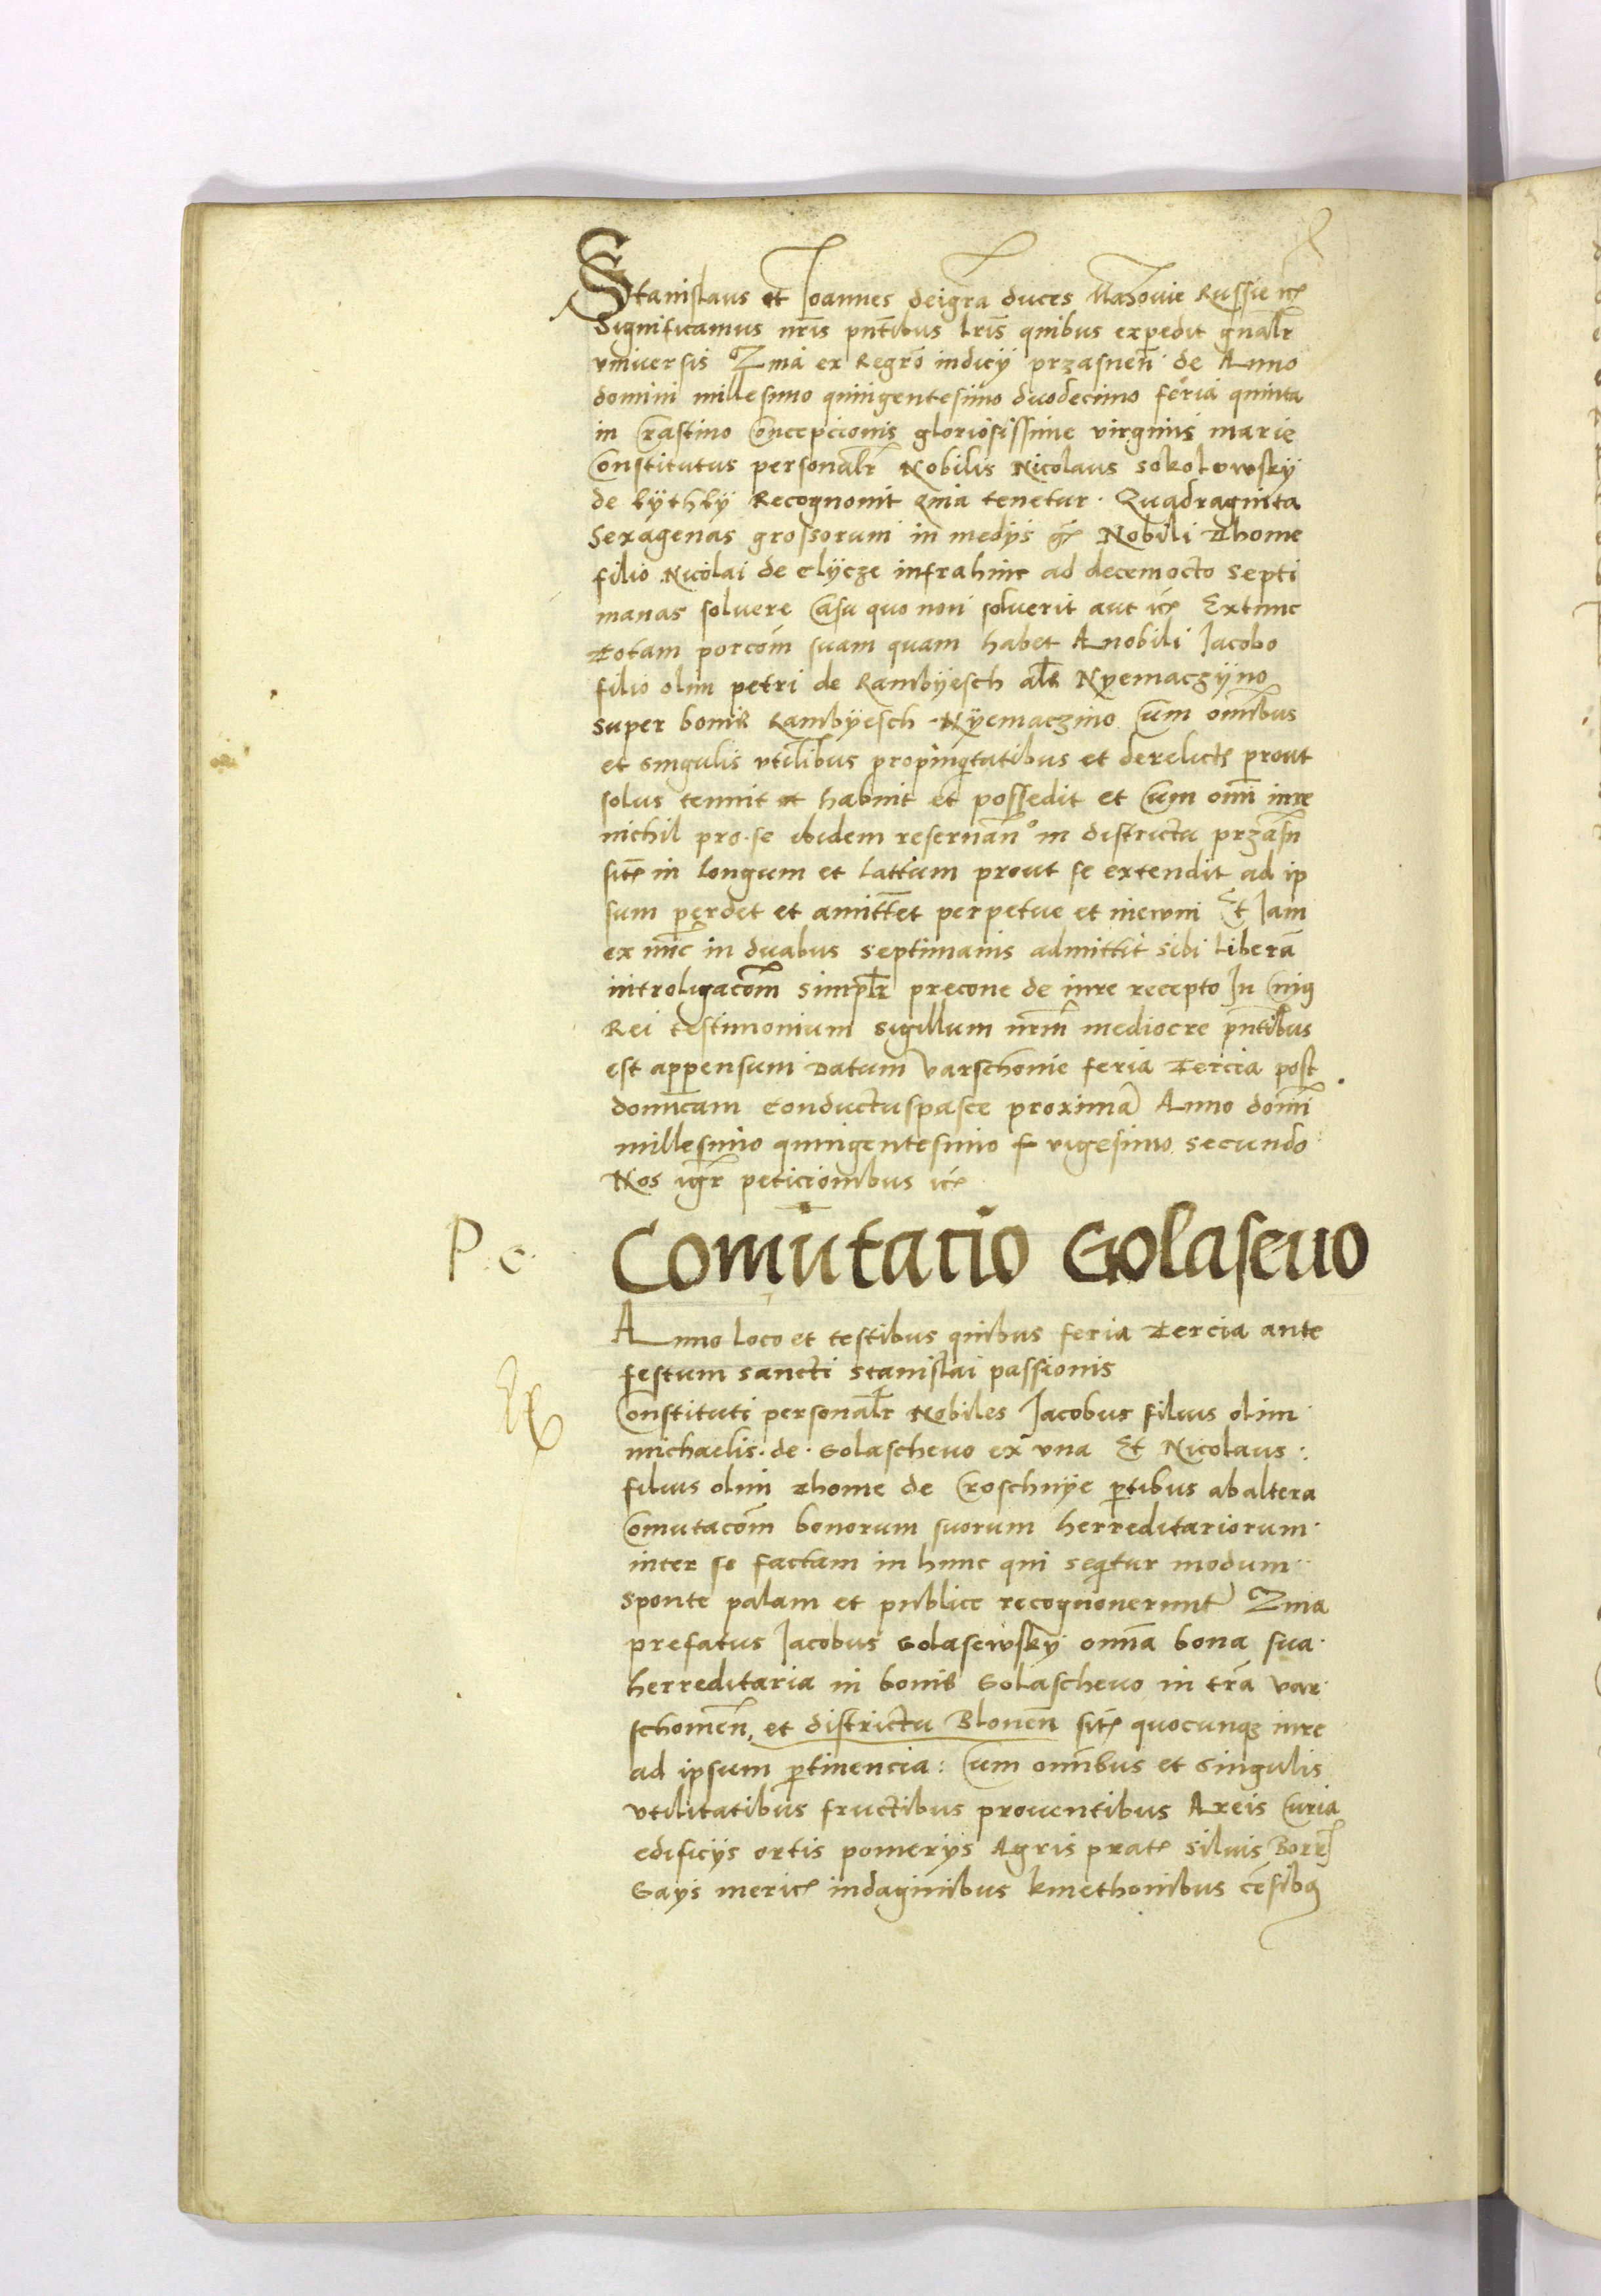 Stanislaus et Joannes deigr̃a duces Mazouie Russie ꝛc̃
Significamus nr̃is pñtibus lr̃is quibus expedit gñalr̃
vniuersis Qma ex Regrõ iudicij przasneñ de Anno
domini millesimo quingentesimo duodecimo feria quinta
in Crastino Concepcionis gloriosissime virginis marie
Constitutus personalr̃ Nobilis Nicolaus sokolowsky
de lÿthlÿ Recognouit Qma tenetur. Quadraginta
Sexagenas grossorum in medÿs gr̃ Nobili Thome
filio Nicolai de elÿcze infrahinc ad decemocto septi
manas soluere Casu quo non soluerit aut ꝛc̃ Extunc
Totam porcõm suam quam habet A nobili Jacobo
filio olim petri de Rambÿesch als Nyemaczÿno
super bonis Rambÿesch Nÿemaczino Cum omĩbus
et singulis vtilibus propinqtatibus et derelictꝭ prout
solus tenuit et habuit et possedit et Cum omi iure
nichil pro se ibidem reseruañº in districtu przasñ
sitꝭ in longum et lattum prout se extendit ad ip
sum perdet et amittet perpetue et niewni Et Jam
ex nũc in duabus septimanis admittit sibi liberã
introligacõm simplr̃ precone de iure recepto In Cuiꝰ
Rei testimonium sigillum nrm̃ mediocre pñtibus
est appensum Datum varschouie feria Tercia post
domĩcam Conductuspasce proximã Anno domĩ
millesimo quingentesimo vigesimo secundo
Nos igr̃ peticionibus ꝛc̃
P. c. Comutacio Golaseuo
Anno loco et testibus quibus feria Tercia ante
festum sancti stanislai passionis
Constituti personalr̃ Nobiles Jacobus filius olim
michaelis. de. Golascheuo ex vna Et Nicolaus
filius olim Thome de Croschnÿe ꝑtibus abaltera
Comutacõm bonorum suorum herreditariorum
inter se factam in hunc qui seqtur modum
Sponte palam et publice recognouerunt Qma
prefatus Jacobus Golasewsky omĩa bona sua
herreditaria in bonis Golascheuo in tr̃a var
schouieñ, et districtu Bloneñ sitꝭ quocunqꝫ iure
ad ipsum ꝑtinencia: Cum omĩbus et singulis
vtilitatibus fructibus prouentibus Areis Curia
edificÿs ortis pomerÿs Agris pratꝭ siluis Borrꝭ
Gays mericꝭ indaginibus kmethonibus cẽsibꝫ